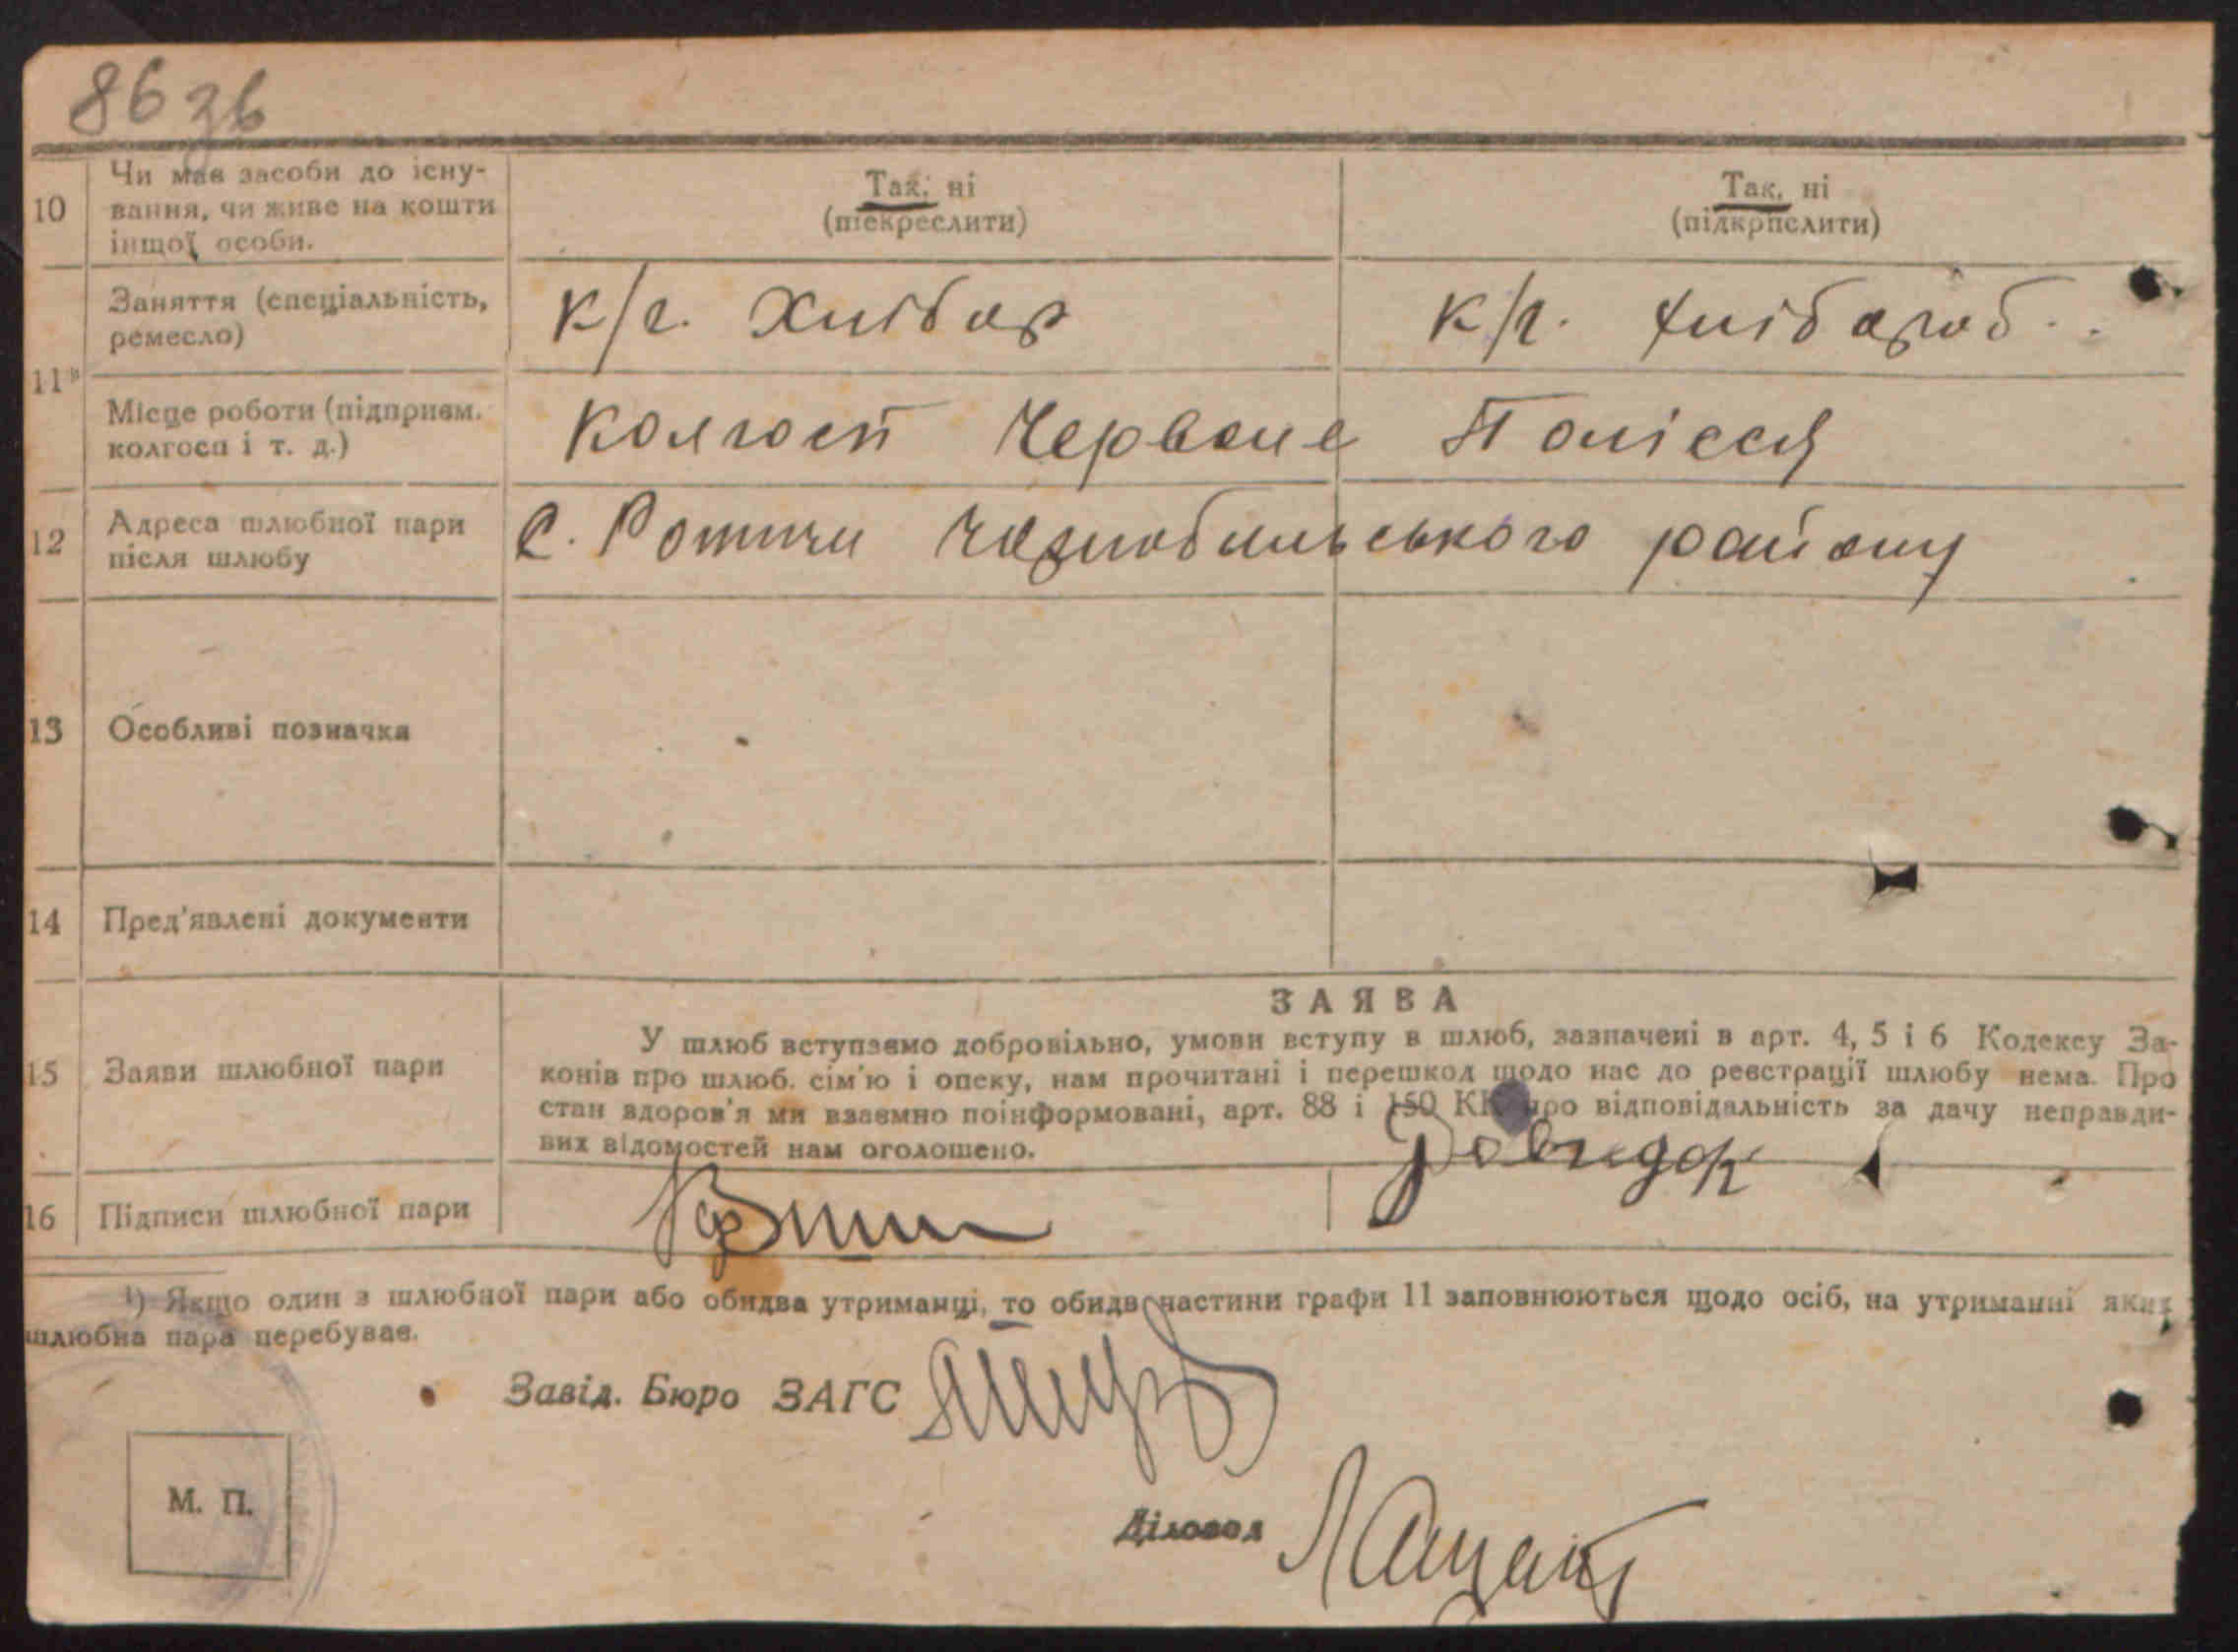 86 зв
10 Чи має засоби до існу-
вання, чи живе на кошти
іншої особи.
Так, ні
(підкреслити)
Так, ні
(підкрпслити)
11¹⁾ Заняття (спеціальність,
ремесло)
к/г. Хлібор
к/г. хлібороб.
Місце роботи (підприєм.
колгосп і т. д.)
Колгосп Червоне Полісся
12 Адреса шлюбної пари
після шлюбу
С. Ротичи Чорнобильського району
13 Особливі позначка
14 Пред'явлені документи
15 Заяви шлюбної пари
ЗАЯВА
У шлюб вступаємо добровільно, умови вступу в шлюб, зазначені в арт. 4, 5 і 6 Кодексу За-
конів про шлюб. сім'ю і опеку, нам прочитані і перешкод щодо нас до реєстрації шлюбу нема. Про
стан здоров'я ми взаємно поінформовані, арт. 88 і 150 КК про відповідальність за дачу неправди-
вих відомостей нам оголошено.
16 Підписи шлюбної пари
¹) Якщо один з шлюбної пари або обидва утриманці, то обидві частини графи 11 заповнюються щодо осіб, на утриманні яких
шлюбна пара перебуває.
Завід. Бюро ЗАГС
М. П.
Діловод